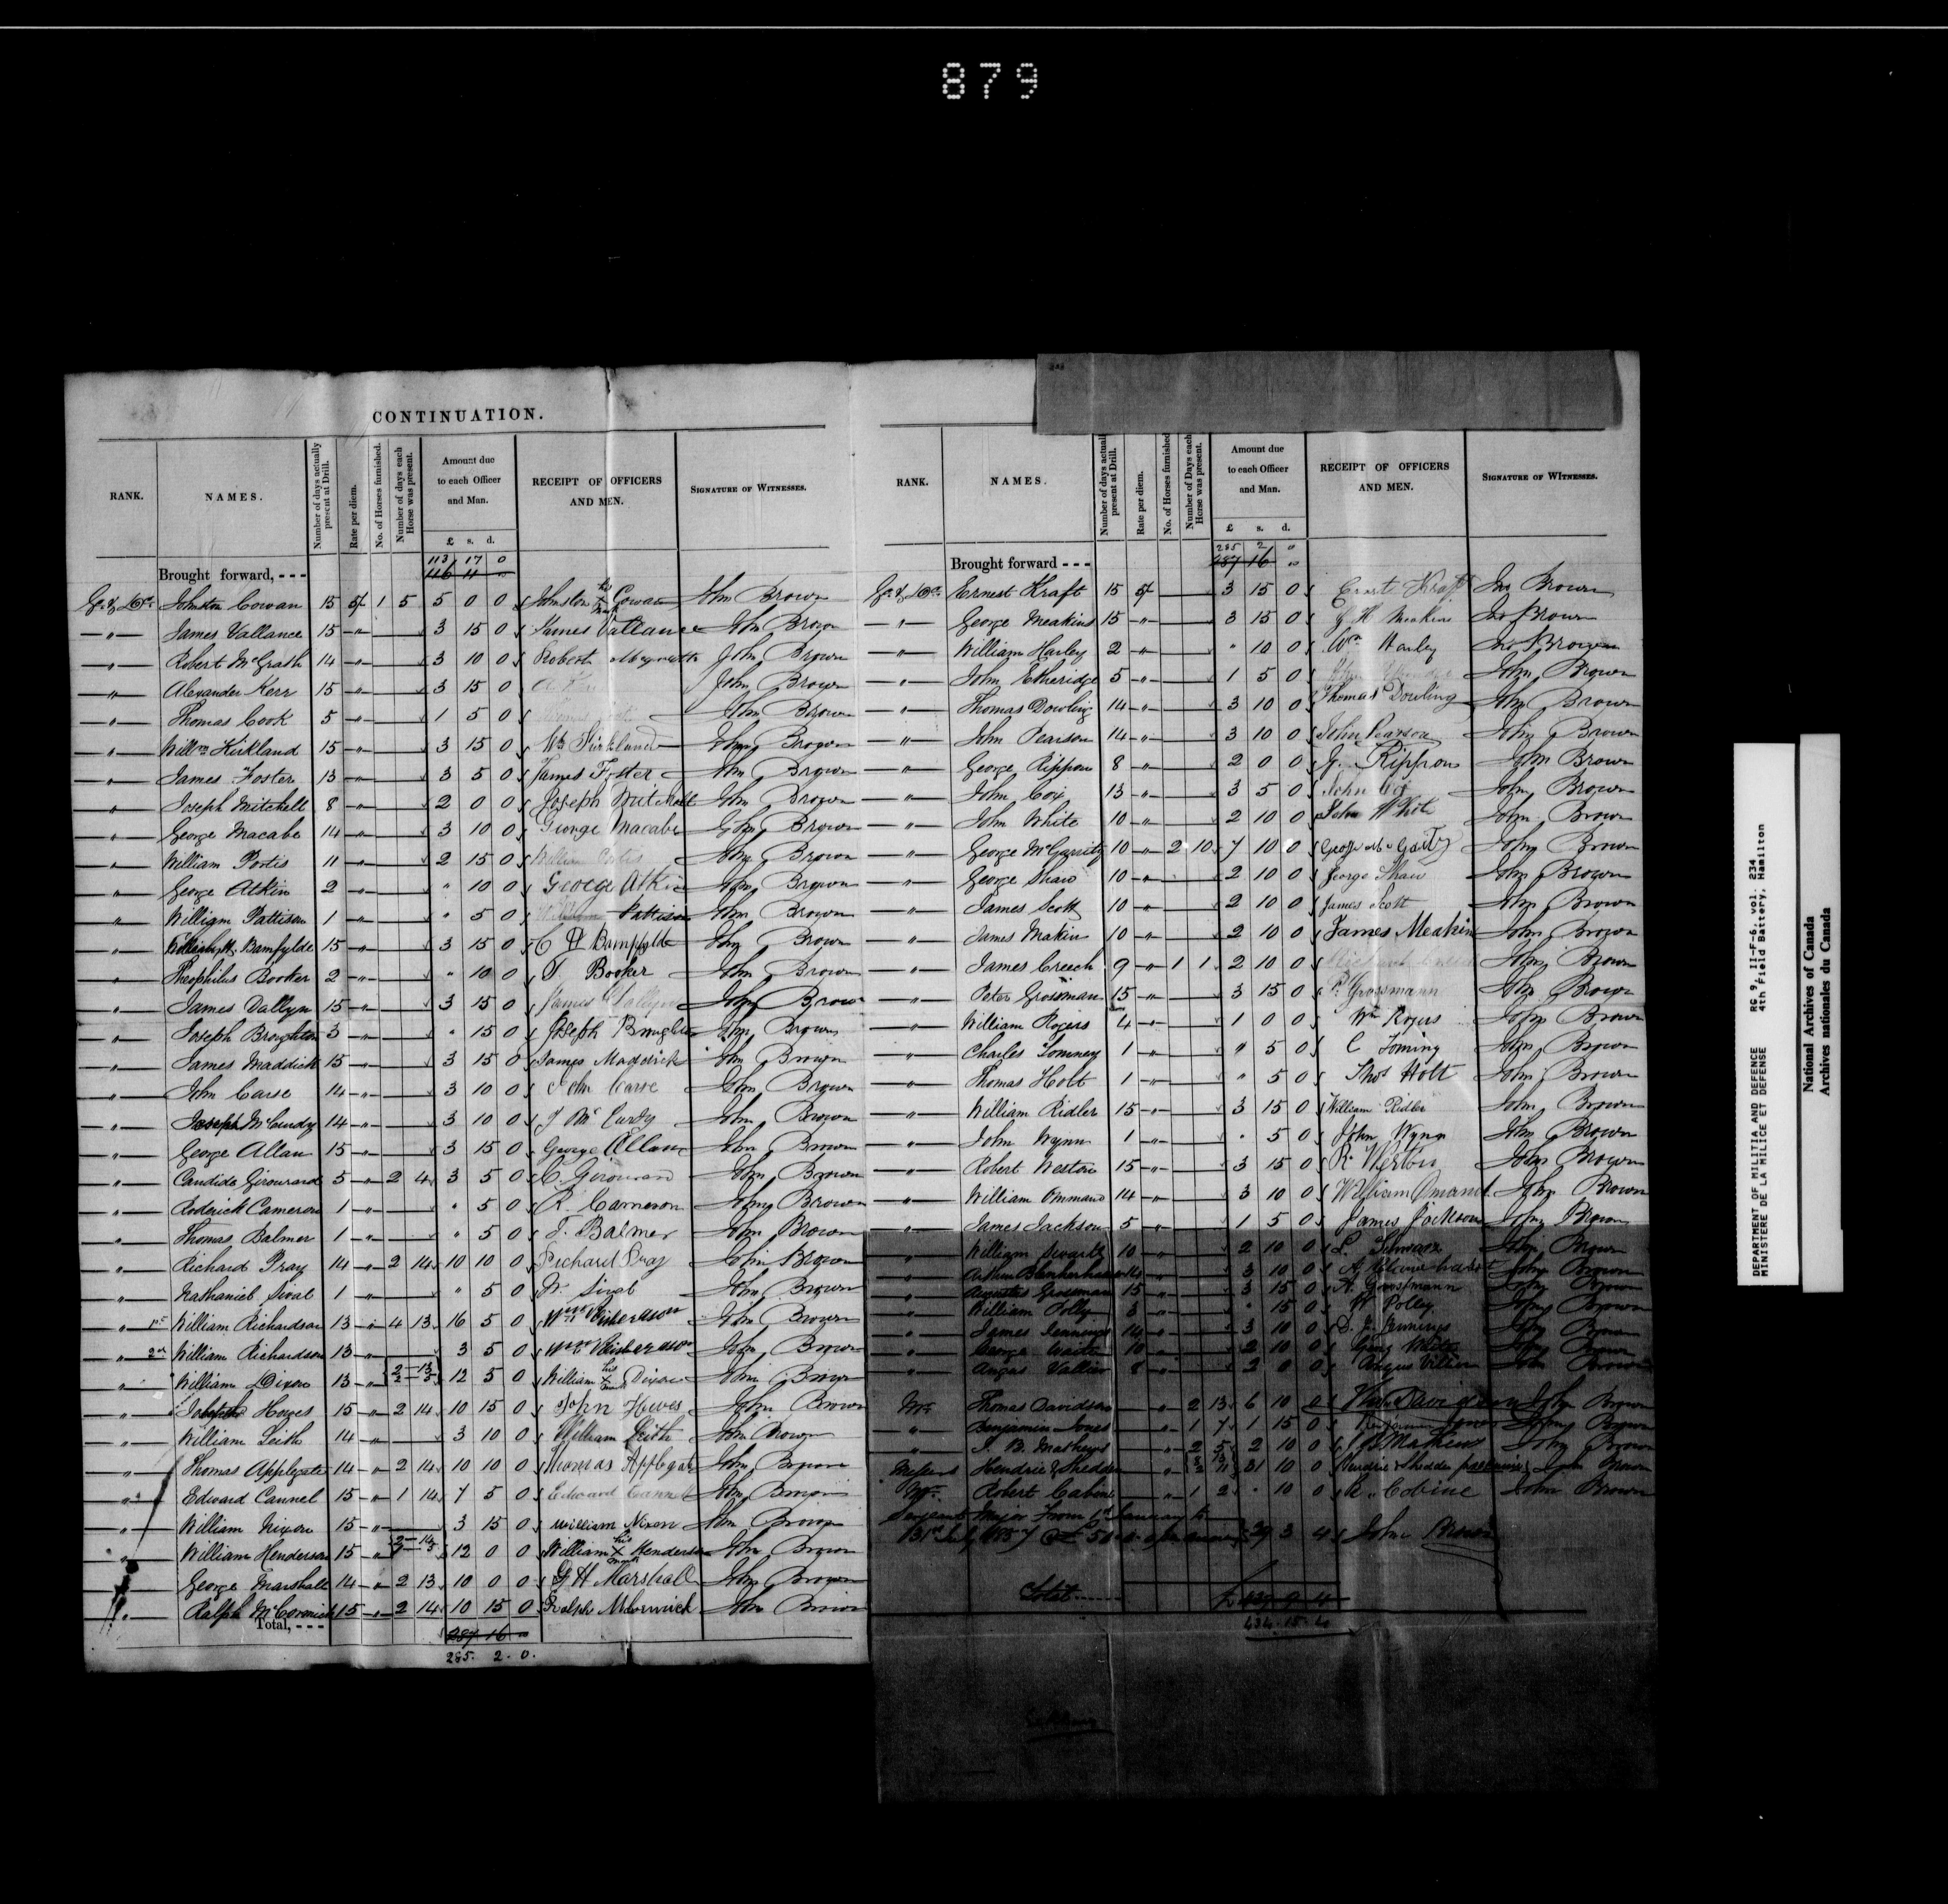 879
CONTINUATION.
RANK. NAMES. Number of days actually present at Drill. Rate per diem. No. of Horses furnished. Number of days each Horse was present. Amount due to each Officer and Man. £ s. d. RECEIPT OF OFFICERS AND MEN. SIGNATURE OF WITNESSES.
113 17 0
Brought forward, - - - 116 11 "
Johnston Cowan 15 5/ 1 5 5 0 0 Johnston his X mark Cowan John Brown
" James Vallance 15 " 3 15 0 James Vallance John Brown
" Robert McGrath 14 " 3 10 0 Robert John Brown
" Alexander Kerr 15 " 3 15 0 A Kerr John Brown
" Thomas Cook 5 " 1 5 0 John Brown
" Willm Kirkland 15 " 3 15 0 Wm Kirkland John Brown
" James Foster 13 " 3 5 0 James Foster John Brown
" Joseph Mitchell 8 " 2 0 0 Joseph Mitchell John Brown
" George Macabe 14 " 3 10 0 George Macabe John Brown
" William Portis 11 " 2 15 0 William Portis John Brown
" George Atkin 2 " " 10 0 George Atkin John Brown
" William Pattison 1 " " 5 0 William Pattison John Brown
" Bamfylde 15 " 3 15 0 C Bampfylde John Brown
" Theophilus Booker 2 " " 10 0 T. Booker John Brown
" James Dallyn 15 " 3 15 0 James Dallyn John Brown
" Joseph Broughton 3 " " 15 0 Joseph Broughton John Brown
" James Maddick 15 " 3 15 0 James Maddick John Brown
" John Carse 14 " 3 10 0 John Carse John Brown
" Joseph McCurdy 14 " 3 10 0 J Mc Curdy John Brown
" George Allan 15 " 3 15 0 George Allan John Brown
" Candide Girouard 5 " 2 4 3 5 0 C. Girouard John Brown
" Roderick Cameron 1 " " 5 0 R. Cameron John Brown
" Thomas Balmer 1 " " 5 0 T. Balmer John Brown
" Richard Pray 14 " 2 14 10 10 0 Richard Pray John Brown
" Nathaniel Sivat 1 " " 5 0 N. Sivat John Brown
" 1st William Richardson 13 " 4 13 16 5 0 Wm Richardson John Brown
" 2nd William Richardson 13 " 3 5 0 Wm Richardson John Brown
" William Dixon 13 " 12 5 0 William his X mark Dixon John Brown
" Howes 15 " 2 14 10 15 0 John Howes John Brown
" William Leith 14 " 3 10 0 William Leith John Brown
" Thomas Applegate 14 " 2 14 10 10 0 Thomas Applegate John Brown
" Edward Cannel 15 " 1 14 7 5 0 Edward Cannel John Brown
" William Nixon 15 " 3 15 0 William Nixon John Brown
" William Henderson 15 " 12 0 0 William his X mark Henderson John Brown
" George Marshall 14 " 2 13 10 0 0 G H Marshall John Brown
" Ralph McCormick 15 " 2 14 10 15 0 Ralph McCormick John Brown
Total, - - - 287 16 "
285. 2. 0.
RANK. NAMES. Number of days actually present at Drill. Rate per diem. No. of Horses furnished. Number of Days each Horse was present. Amount due to each Officer and Man. £ s. d. RECEIPT OF OFFICERS AND MEN. SIGNATURE OF WITNESSES.
285 2 "
Brought forward - - - 287 16 "
Ernest Kraft 15 5/ 3 15 0 Ernst Kraft Jno Brown
" George Meakins 15 " 3 15 0 G H Meakins Jno Brown
" William Harley 2 " " 10 0 Wm Harley Jno Brown
" John Etheridge 5 " 1 5 0 John Brown
" Thomas Dowling 14 " 3 10 0 Thomas Dowling John Brown
" John Pearson 14 " 3 10 0 John Pearson John Brown
" George Rippon 8 " 2 0 0 G. Rippon John Brown
" John Cox 13 " 3 5 0 John Cox John Brown
" John White 10 " 2 10 0 John White John Brown
" George McGarrity 10 " 2 10 7 10 0 John Brown
" George Shaw 10 " 2 10 0 George Shaw John Brown
" James Scott 10 " 2 10 0 James Scott John Brown
" James Makin 10 " 2 10 0 James Meakin John Brown
" James Creech 9 " 1 1 2 10 0 John Brown
" Peter Grossman 15 " 3 15 0 P. Grossmann John Brown
" William Rogers 4 " 1 0 0 Wm Rogers John Brown
" Charles Tominey 1 " " 5 0 C Toming John Brown
" Thomas Holt 1 " " 5 0 Thos Holt John Brown
" William Ridler 15 " 3 15 0 William Ridler John Brown
" John Wynn 1 " " 5 0 John Wynn John Brown
" Robert Weston 15 " 3 15 0 R. Weston John Brown
" William Ommand 14 " 3 10 0 William Omand John Brown
" James Jackson 5 " 1 5 0 James Jackson John Brown
" William Swartz 10 " 2 10 0 L. Schwarz John Brown
" 14 " 3 10 0 John Brown
" Augustus Grossman 15 " 3 15 0 A. Grossmann John Brown
" William Polley 3 " " 15 0 W Polley John Brown
" James Jennings 14 " 3 10 0 Jennings John Brown
" George Waite 10 " 2 10 0 John Brown
" Angus 8 " 2 0 0 Angus John Brown
Mr. Thomas Davidson " 2 13 6 10 0 Davidson John Brown
" Benjamin Jones " 1 7 1 15 0 Benjamin Jones John Brown
" J. B. Mathews " 2 5 2 10 0 J B Mathews John Brown
Messrs Hendrie & Shedden " 31 10 0 Hendrie & Shedden John Brown
Mr. Robert Cabine " 1 2 " 10 0 R. Cobine John Brown
Sergeant Major From 1st January to
31st July 1857 29 3 4 John Brown
Total £ 439 9 4
434. 15. 4
DEPARTMENT OF MILITIA AND DEFENCE RG 9, II-F-6, vol. 234
MINISTERE DE LA MILICE ET DEFENSE 4th Field Battery, Hamilton
National Archives of Canada
Archives nationales du Canada